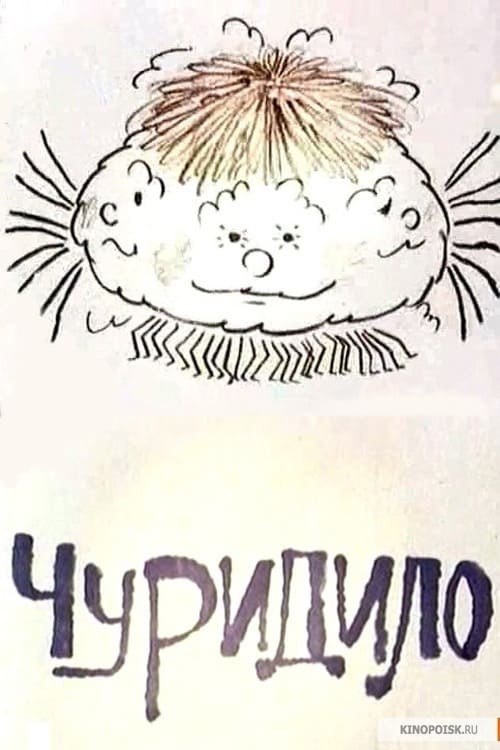 Чуридило
KINOPOISK.RU